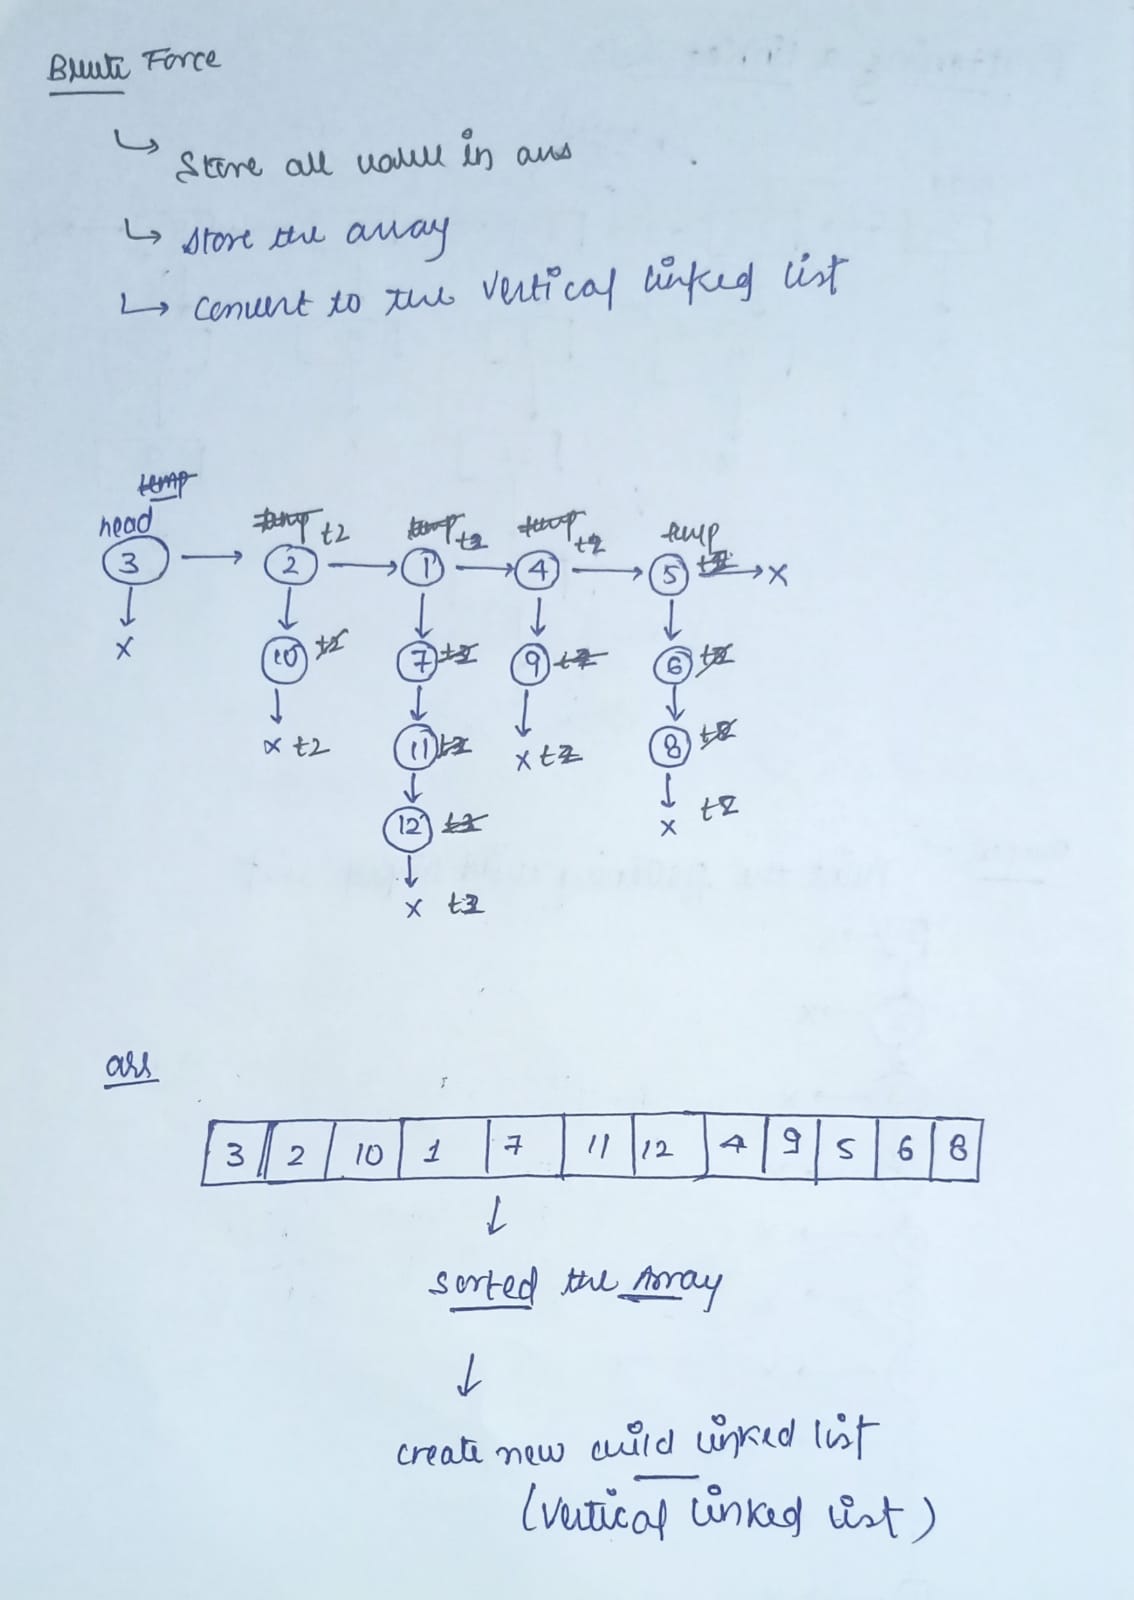 Brute Force
↳ Store all value in arr
↳ store the array
↳ convert to the vertical linked list
temp
head temp t2 temp t2 temp t2 temp
3 → 2 → 1 → 4 → 5 t2 → x
x 10 t2 7 t2 9 t2 6 t2
x t2 11 t2 x t2 8 t2
12 t2 x t2
x t2
arr
3 2 10 1 7 11 12 4 9 5 6 8
↓
sorted the Array
↓
create new child linked list
(vertical linked list)